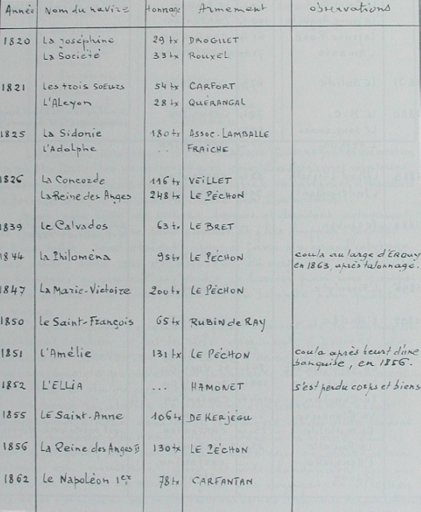 Année Nom du navire Tonnage Armement Observations
1820 La Joséphine 29 tx DROGUET
La Société 33 tx ROUXEL
1821 Les trois Soeurs 54 tx CARFORT
L'Alcyon 28 tx QUERANGAL
1825 La Sidonie 180 tx ASSOC. LAMBALLE
L'Adolphe .. FRAICHE
1826 La Concorde 116 tx VEILLET
La Reine des Anges 248 tx LE PÉCHON
1839 Le Calvados 63 tx LE BRET
1844 La Philoména 95 tx LE PÉCHON coula au large d'EROUY
en 1863, après talonnage.
1847 La Marie-Victoire 200 tx LE PÉCHON
1850 Le Saint-François 65 tx RUBIN de RAY
1851 L'Amélie 131 tx LE PÉCHON coula après heurt d'une
banquise, en 1856.
1852 L'ELLIA ... HAMONET s'est perdu corps et biens
1855 LE Saint-Anne 106 tx DE KERJÉGU
1856 La Reine des Anges 130 tx LE PÉCHON
1862 Le Napoléon 1er 78 tx CARFANTAN